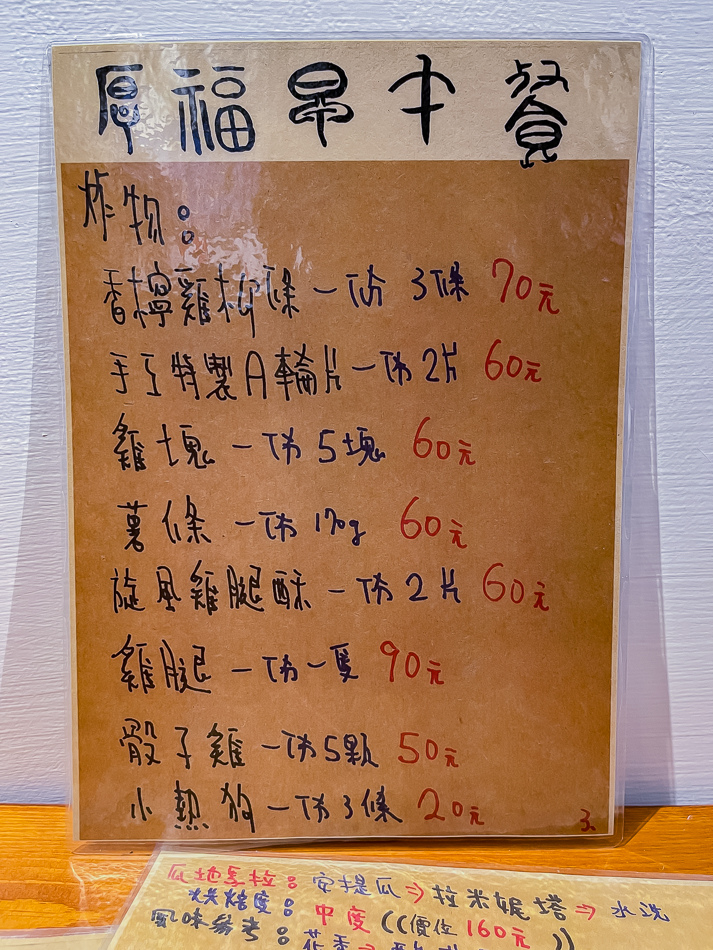 厚福早午餐
炸物：
香檸雞柳條一份 3條 70元
手工特製A輪片一份2片 60元
雞塊一份5塊 60元
薯條一份170g 60元
旋風雞腿酥一份2片 60元
雞腿一份一隻 90元
骰子雞一份5顆 50元
小熱狗一份3條 20元
3.
瓜地馬拉：安提瓜⇒拉米妮塔⇒水洗
烘焙度：中度((價位160元))
風味參考：花香⇒